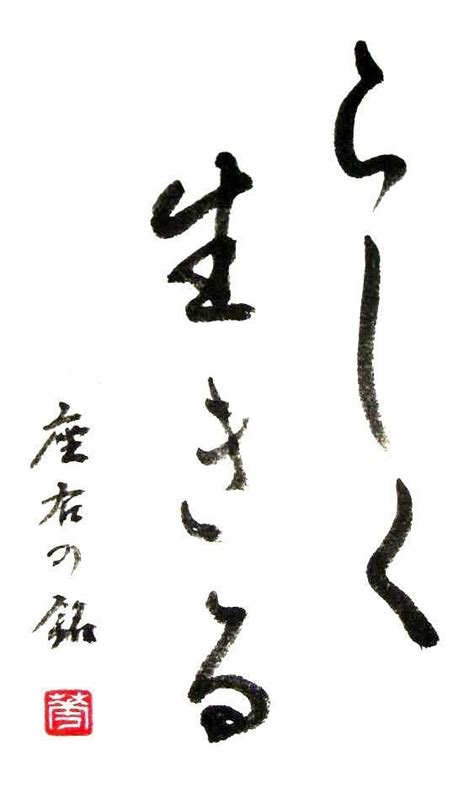 らしく
生きる
座右の銘